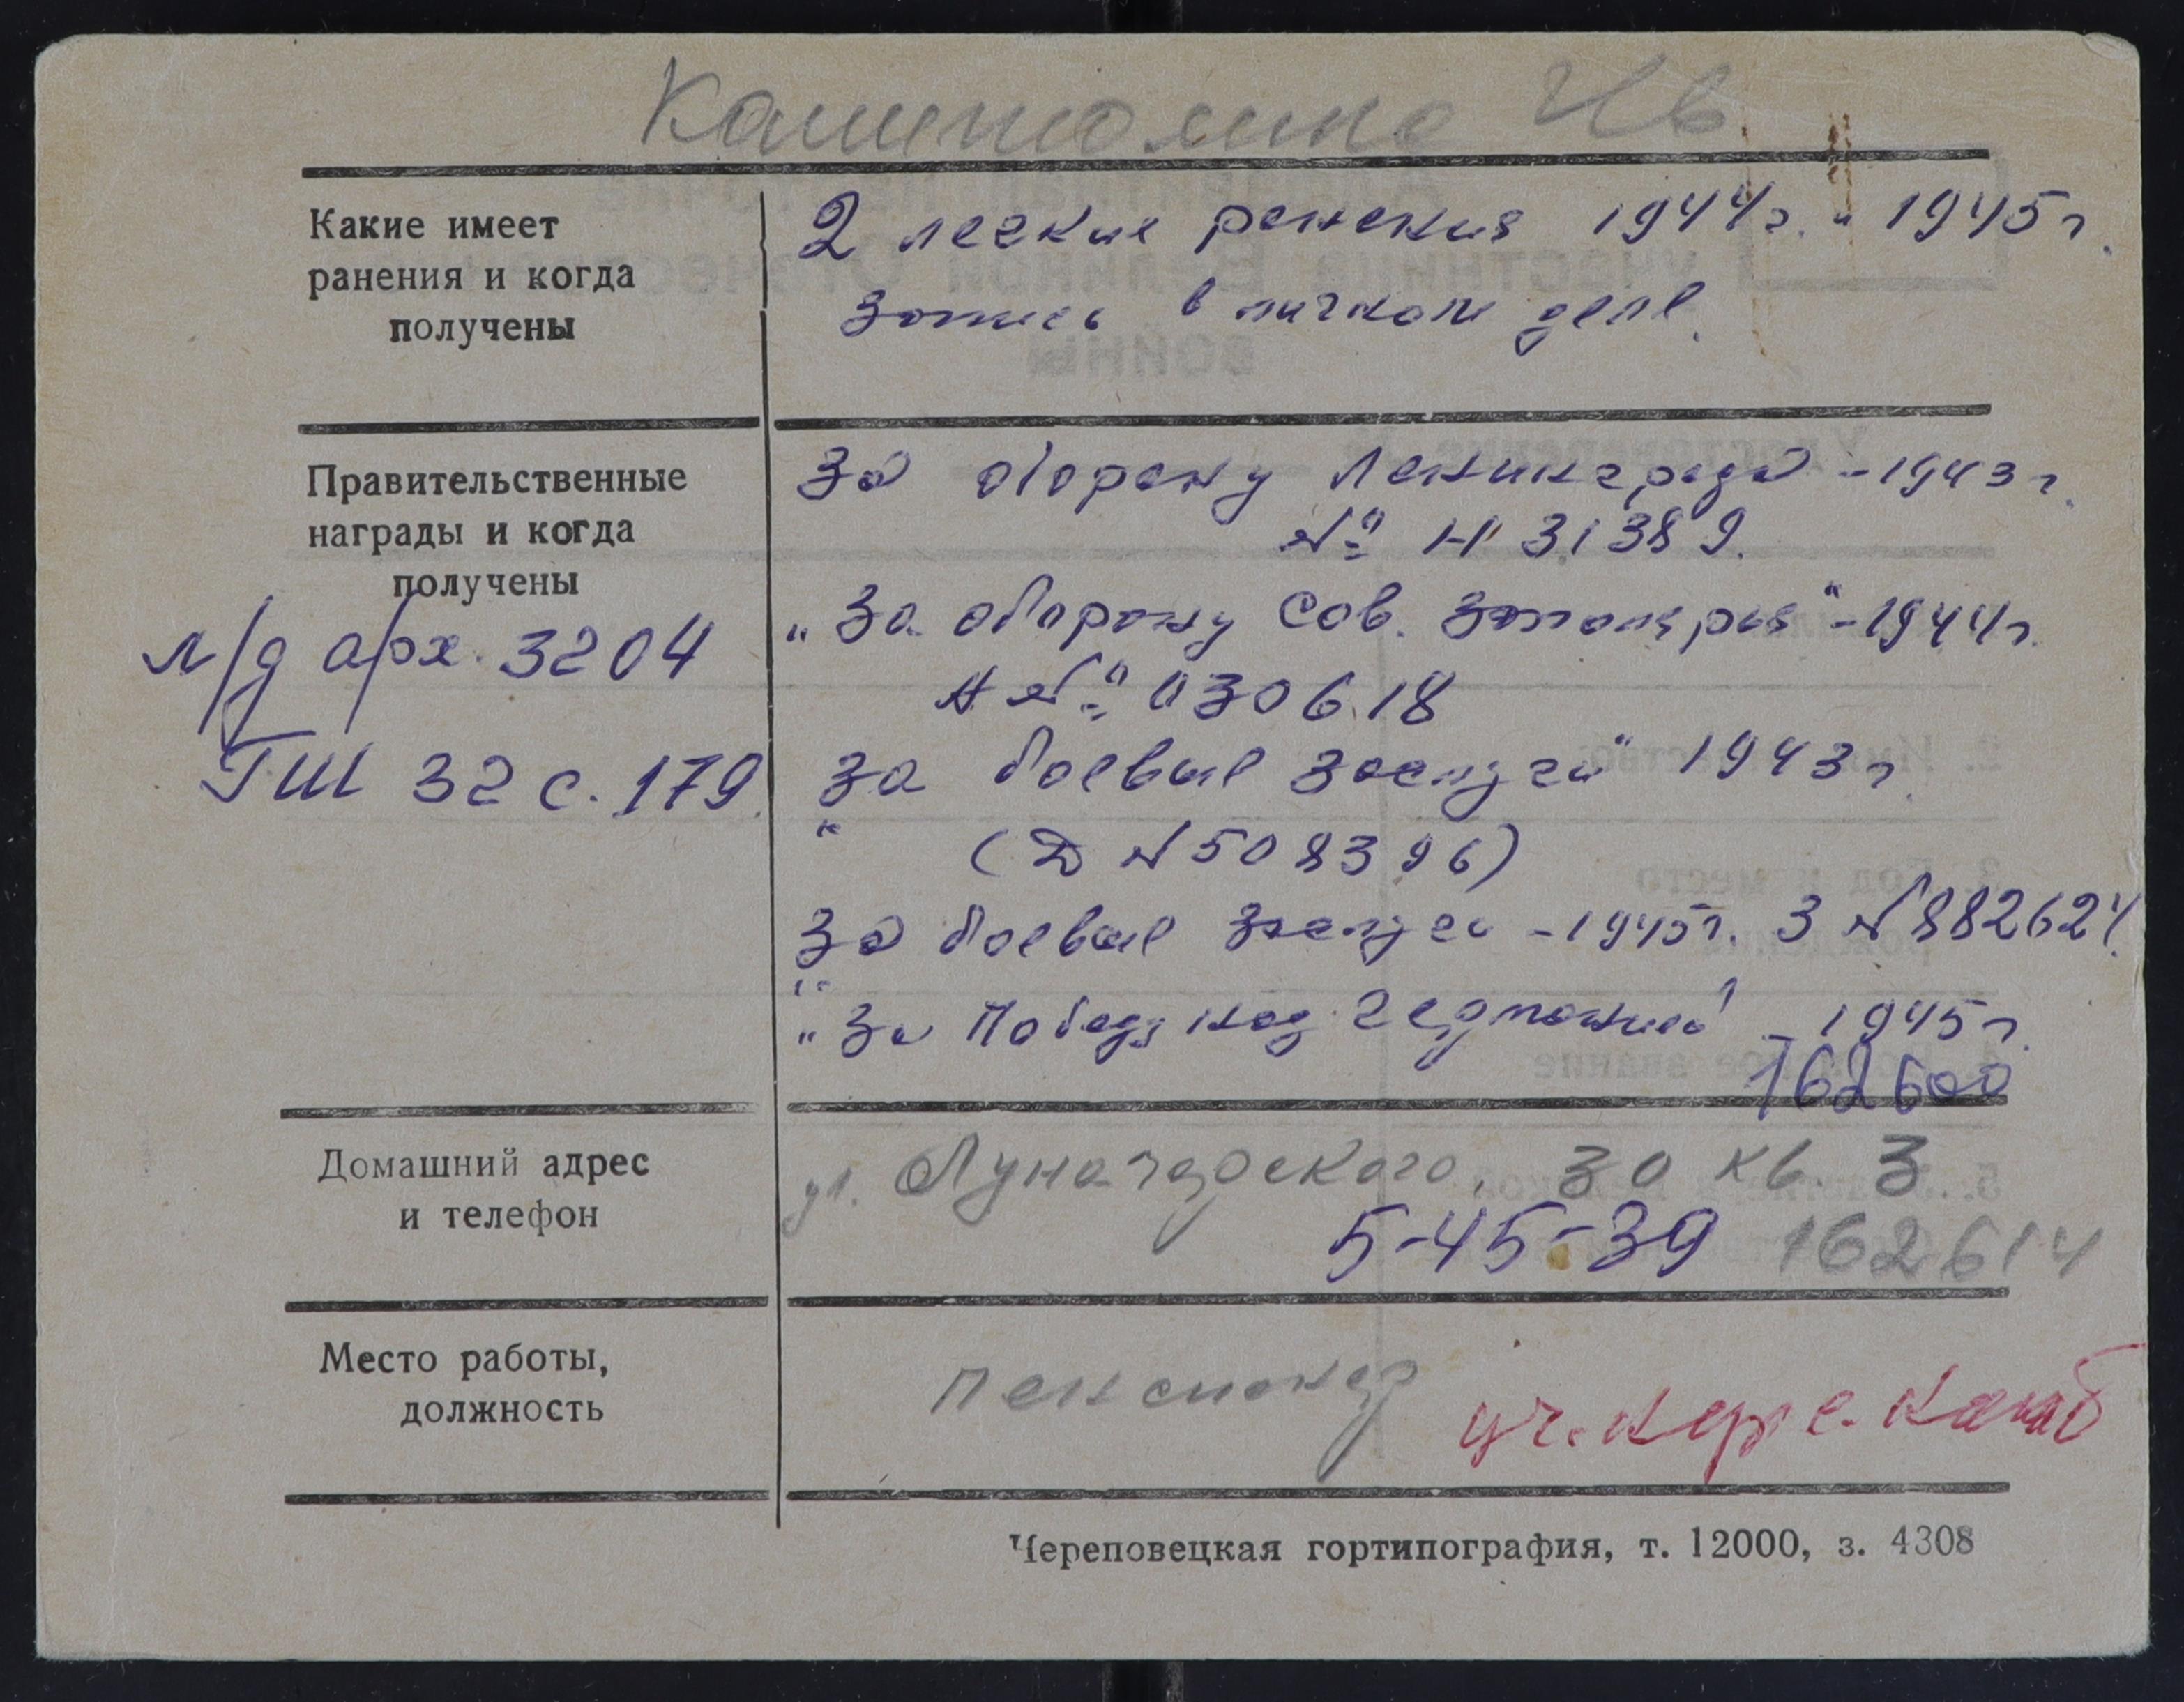 Капитолина Ив
Какие имеет
ранения и когда
получены
2 легкие ранения 1944 г. и 1945 г.
запись в личном деле.
Правительственные
награды и когда
получены
л/д арх. 3204
ГШ 32 с. 179.
За оборону Ленинграда - 1943 г.
№ Н 31389.
"За оборону Сов. Заполярья" - 1944 г.
№ 030618
"За боевые заслуги" 1943 г.
(Д № 508396)
"За боевые заслуги - 1945 г. З № 882624.
"За Победу над Германией" - 1945 г.
162600
Домашний адрес
и телефон
ул. Луначарского, 30 кв. 3
5-45-39 162614
Место работы,
должность
пенсионер
уч.
Череповецкая гортипография, т. 12000, з. 4308